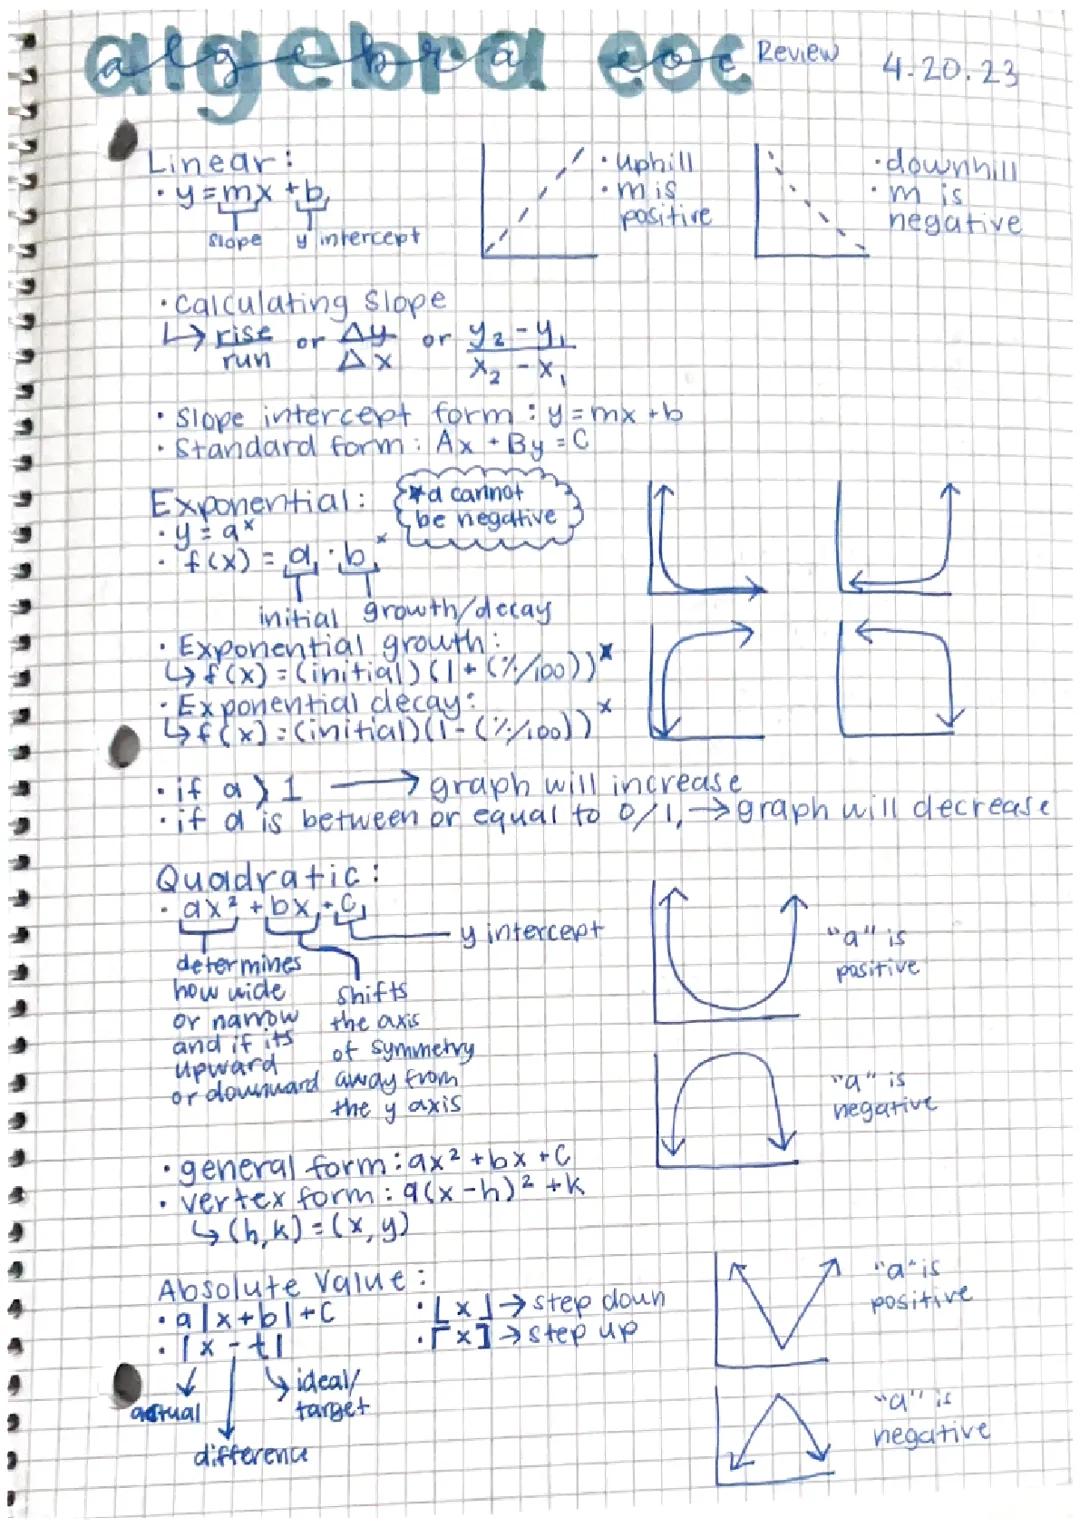 algebra eoc Review 4.20.23
Linear:
· y = mx + b
slope y intercept
· uphill
· m is
positive
· downhill
· m is
negative
· Calculating Slope
↳ rise/run or Δy/Δx or y₂ - y₁/x₂ - x₁
· Slope intercept form: y = mx + b
· Standard form: Ax + By = C
Exponential:
*a cannot
be negative
· y = aˣ
· f(x) = a · bˣ
initial growth/decay
· Exponential growth:
↳ f(x) = (initial)(1 + (%/100))ˣ
· Exponential decay:
↳ f(x) = (initial)(1 - (%/100))ˣ
· if a > 1 → graph will increase
· if a is between or equal to 0/1, → graph will decrease
Quadratic:
· ax² + bx + C
y intercept
determines
how wide
or narrow
and if its
upward
or downward
shifts
the axis
of symmetry
away from
the y axis
"a" is
positive
"a" is
negative
· general form: ax² + bx + C
· vertex form: a(x-h)² + k
↳ (h,k) = (x,y)
Absolute Value:
· a|x+b|+C
· |x - t|
actual
difference
ideal/
target
· ⌊x⌋ → step down
· ⌈x⌉ → step up
"a" is
positive
"a" is
negative